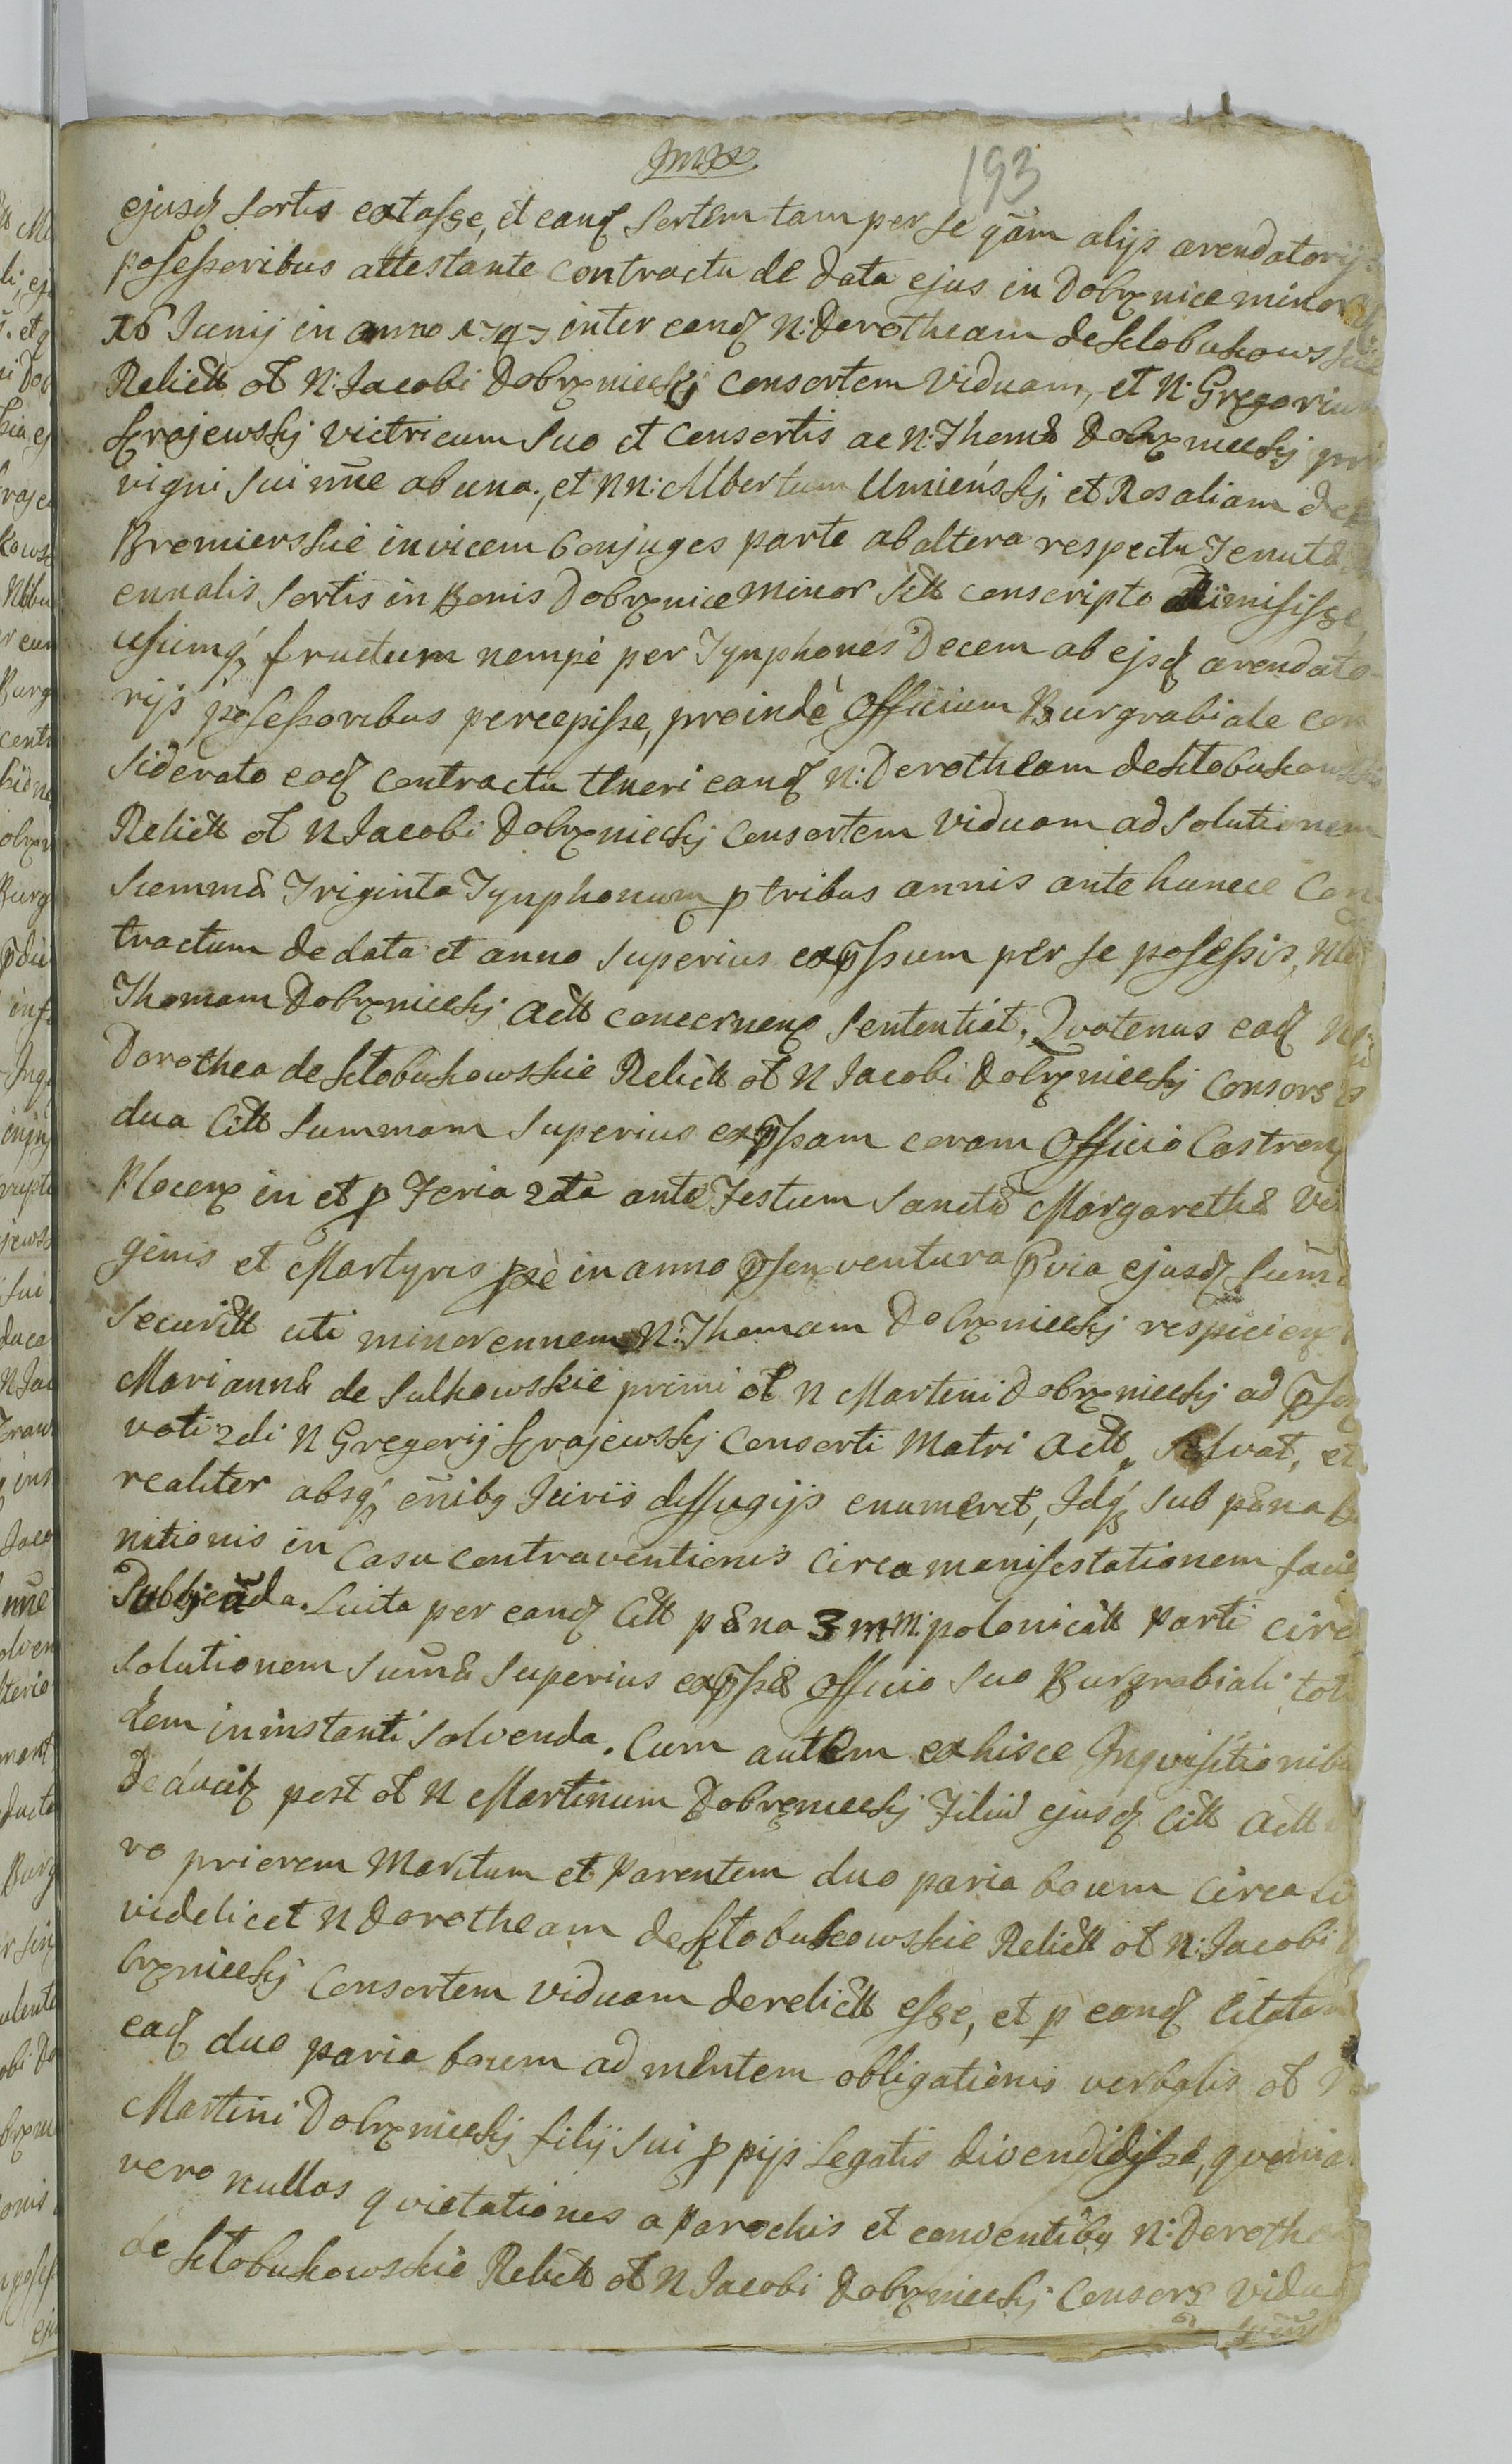 193
ejusq sortis extasse, et eanq sortem tam per se qām alijs arendatorijs
possessoribus attestante contractu de data ejus in Dobrznice minor
16 Junij in anno 1747 inter eanq N: Dorotheam de Kłobukowsskie
Relictt ol N: Jacobi Dobrznieckij consortem viduam, et N: Gregorium
Krajewskij vietricum suo et consortis ac N: Thomæ Dobrzniecskij pri
vigni sui nñe ab una, et NN: Albertum Umieńskj, et Rosaliam de
Bromierskie invicem Conjuges parte ab altera respectu Tenutæ
ennalis sortis in Bonis Dobrznice minor sitt conscripto dimisisse,
usumq fructum nempè per Tynphones Decem ab ejsq arendato-
rijs possessoribus percepisse, proindè Officium Burgrabiale con
siderato eoq contractu teneri eanq N: Dorotheam de Kłobukowskie
Relictt ol N Jacobi Dobrznieckij consortem viduam ad solutionem
summæ Triginta Tynphonum p tribus annis ante huncce Con
tractum de data et anno superius expssum per se possessis, Nlem
Thomam Dobrznieckij Actt concernenς sententiat, Qvatenus eaq N
Dorothea de Kłobukowskie Relictt ol N Jacobi Dobrznieckij Consors vi
dua Citt summam superius expssam coram Officio Castren
Plocenς in et p Feria 2da ante Festum Sanctæ Margarethæ Vir
ginis et Martyris pxè in anno psen ventura pvia ejusq sum̄æ
Securitt uti minorennem N: Thomam Dobrznieckij respicienς
Mariannæ de Sulkowskie primi ol N Martini Dobrznieckij ad psen
voti 2di N Gregorij Krajewskij Consorti Matri Actt, solvat, et
realiter absq ōnibq Juris diffugijs enumeret, Idq sub pæna ba
nitionis in Casu contraventionis circa manifestationem facien
Publicāda. Luita per eanq Citt pæna 3 m M: polonicatt Parti circa
solutionem sum̄æ superius expssæ Officio suo Burgrabiali toti
dem in instanti solvenda. Cum autem ex hisce Inqvisitionibu
Deducitζ post ol N Martinum Dobrznieckij Filiū ejusq Citt Actt
ro priorem Maritum et Parentem duo paria boum circa Ci
videlicet N Dorotheam de Kłobukowskie Relictt ol N: Jacobi
brznieckij Consortem viduam derelictt esse, et p eanq Citatam
eaq duo paria boum ad mentem obligationis verbalis ol N
Martini Dobrznieckij filij sui p pijs Legatis divendidisse, qvonia
vero nullas qvietationes a Parochis et conventibq N: Dorothea
de Kłobukowskie Relictt ol N Jacobi Dobrznieckij Consors vidua